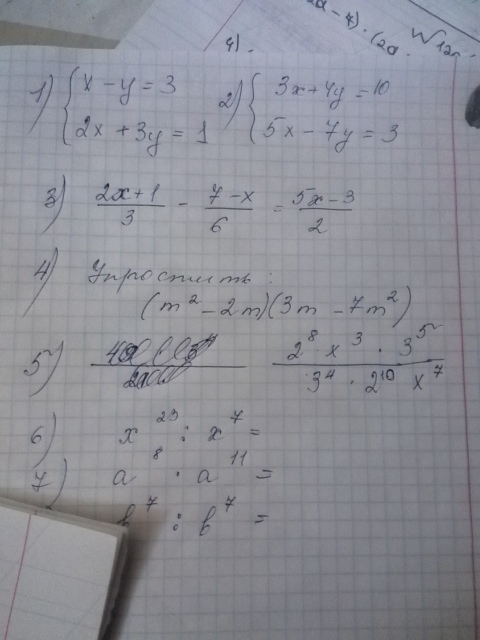 2a - 4) · (2a
4).
1) { x - y = 3
2x + 3y = 1
2) { 3x + 4y = 10
5x - 7y = 3
3) (2x+1)/3 - (7-x)/6 = (5x-3)/2
4) Упростить:
(m² - 2m)(3m - 7m²)
5) (2⁸ x³ · 3⁵)/(3⁴ · 2¹⁰ x⁷)
6) x²³ : x⁷ =
7) a⁸ · a¹¹ =
b⁷ : b⁷ =